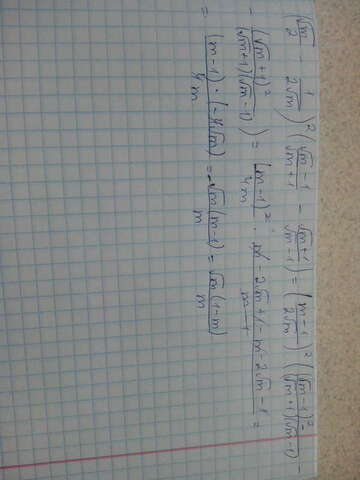 (√m/2 - 1/2√m)² (√m-1/√m+1 - √m+1/√m-1) = (m-1/2√m)² ((√m-1)²/(√m+1)(√m-1) -
- (√m+1)²/(√m+1)(√m-1)) = (m-1)²/4m · m-2√m+1-m-2√m-1/m-1 =
= (m-1)·(-4√m)/4m = -√m(m-1)/m = √m(1-m)/m